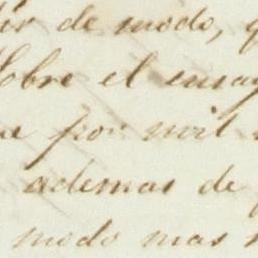 de modo,
sobre el ensay
por mil
ademas de
modo mas